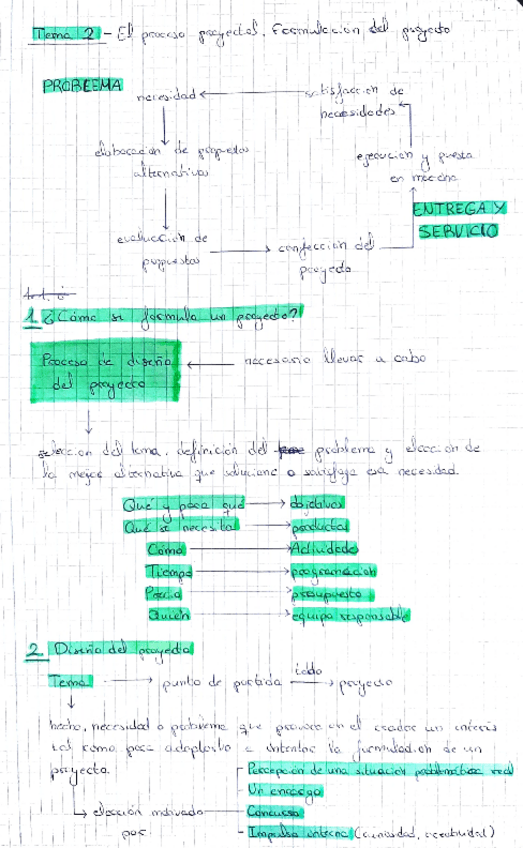 Tema 2 - El proceso proyectal. Formulación del proyecto
PROBLEMA
necesidad
satisfacción de
necesidades
elaboración de propuestas
alternativas
ejecución y puesta
en marcha
ENTREGA Y
SERVICIO
evaluación de
propuestas
confección del
proyecto
1. ¿Cómo se formula un proyecto?
Proceso de diseño
del proyecto
necesario llevar a cabo
selección del tema, definición del problema y elección de
la mejor alternativa que solucione o satisfaga esa necesidad.
Qué y para qué → objetivos
Qué se necesita → productos
Cómo → Actividades
Tiempo → programación
Precio → presupuesto
Quién → equipo responsable
2. Diseño del proyecto
Tema → punto de partida → proyecto
hecho, necesidad o problema que provoca en el creador un interés
tal como para adoptarlo e intentar la formulación de un
proyecto.
- Percepción de una situación problemática real
- Un encargo
elección motivada
por
- Concurso
- Impulso interno (curiosidad, creatividad)